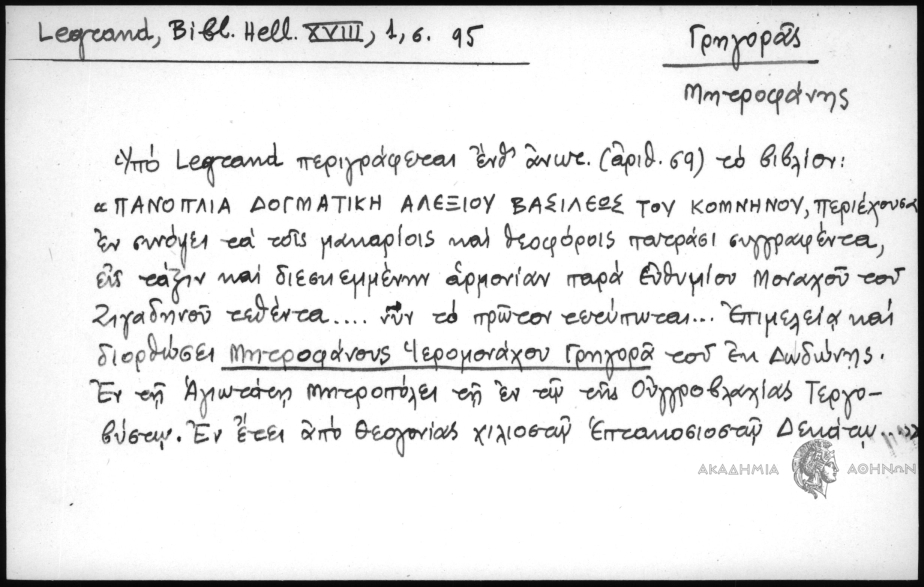 Legrand, Bibl. Hell. XVIII, 1, σ. 95
Γρηγορᾶς
Μητροφάνης
Ὑπό Legrand περιγράφεται ἔνθ' ἄνωτ. (ἀριθ. 69) τό βιβλίον:
«ΠΑΝΟΠΛΙΑ ΔΟΓΜΑΤΙΚΗ ΑΛΕΞΙΟΥ ΒΑΣΙΛΕΩΣ ΤΟΥ ΚΟΜΝΗΝΟΥ, περιέχουσα
ἐν συνόψει τά τοῖς μακαρίοις καί θεοφόροις πατράσι συγγραφέντα,
εἰς τάξιν καί διεσκεμμένην ἁρμονίαν παρά Εὐθυμίου Μοναχοῦ τοῦ
Ζιγαδηνοῦ τεθέντα.... νῦν τό πρῶτον τετύπωται... Ἐπιμελείᾳ καί
διορθώσει Μητροφάνους Ἱερομονάχου Γρηγορᾶ τοῦ ἐκ Δωδώνης.
Ἐν τῇ Ἁγιωτάτῃ Μητροπόλει τῇ ἐν τῷ τῆς Οὐγγροβλαχίας Τεργο-
βύστῳ. Ἐν ἔτει ἀπό θεογονίας χιλιοστῷ ἑπτακοσιοστῷ Δεκάτῳ...»
ΑΚΑΔΗΜΙΑ ΑΘΗΝΩΝ